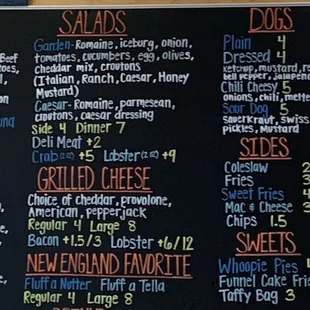 SALADS
Garden-Romaine, iceburg, onion,
tomatoes, cucumbers, egg, olives,
cheddar mix, croutons
(Italian, Ranch, Caesar, Honey
Mustard)
Caesar-Romaine, parmesean,
croutons, caesar dressing
Side 4 Dinner 7
Deli Meat +2
Crab (2 oz) +5 Lobster (2 oz) +9
GRILLED CHEESE
Choice of cheddar, provolone,
American, pepperjack
Regular 4 Large 8
Bacon +1.5/3 Lobster +6/12
NEW ENGLAND FAVORITE
Fluff a Nutter Fluff a Tella
Regular 4 Large 8
DOGS
Plain 4
Dressed 4
ketchup, mustard,
bell pepper, jalapeno
Chili Cheesy 5
onions, chili,
Sour Dog 5
Sauerkraut, swiss
pickles, Mustard
SIDES
Coleslaw
Fries 3
Sweet Fries 4
Mac & Cheese 3
Chips 1.5
SWEETS
Whoopie Pies
Funnel Cake Fri
Taffy Bag 3
Beef